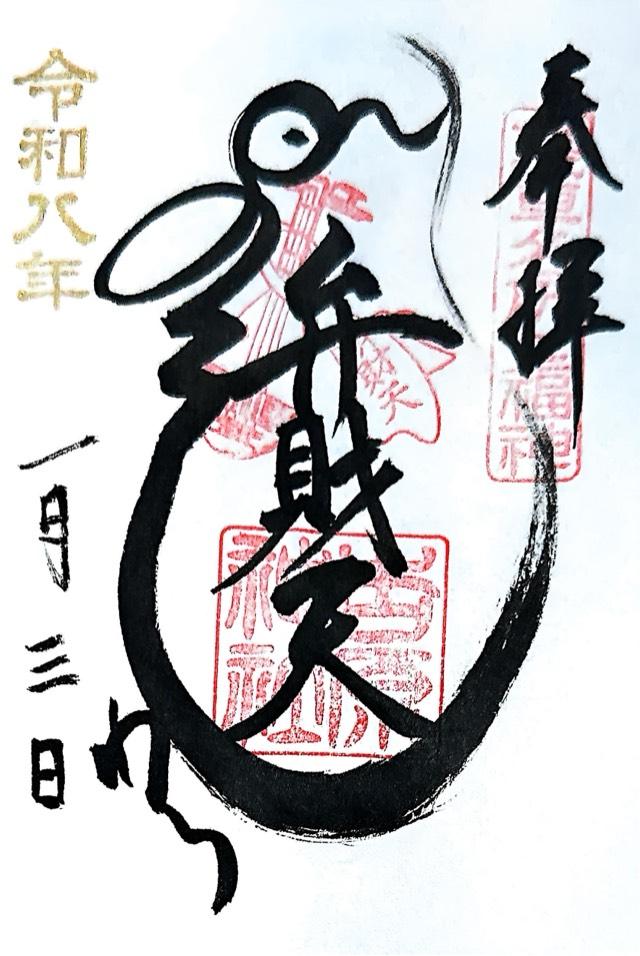 奉拝
福神
弁財天
神社
令和八年
一月三日